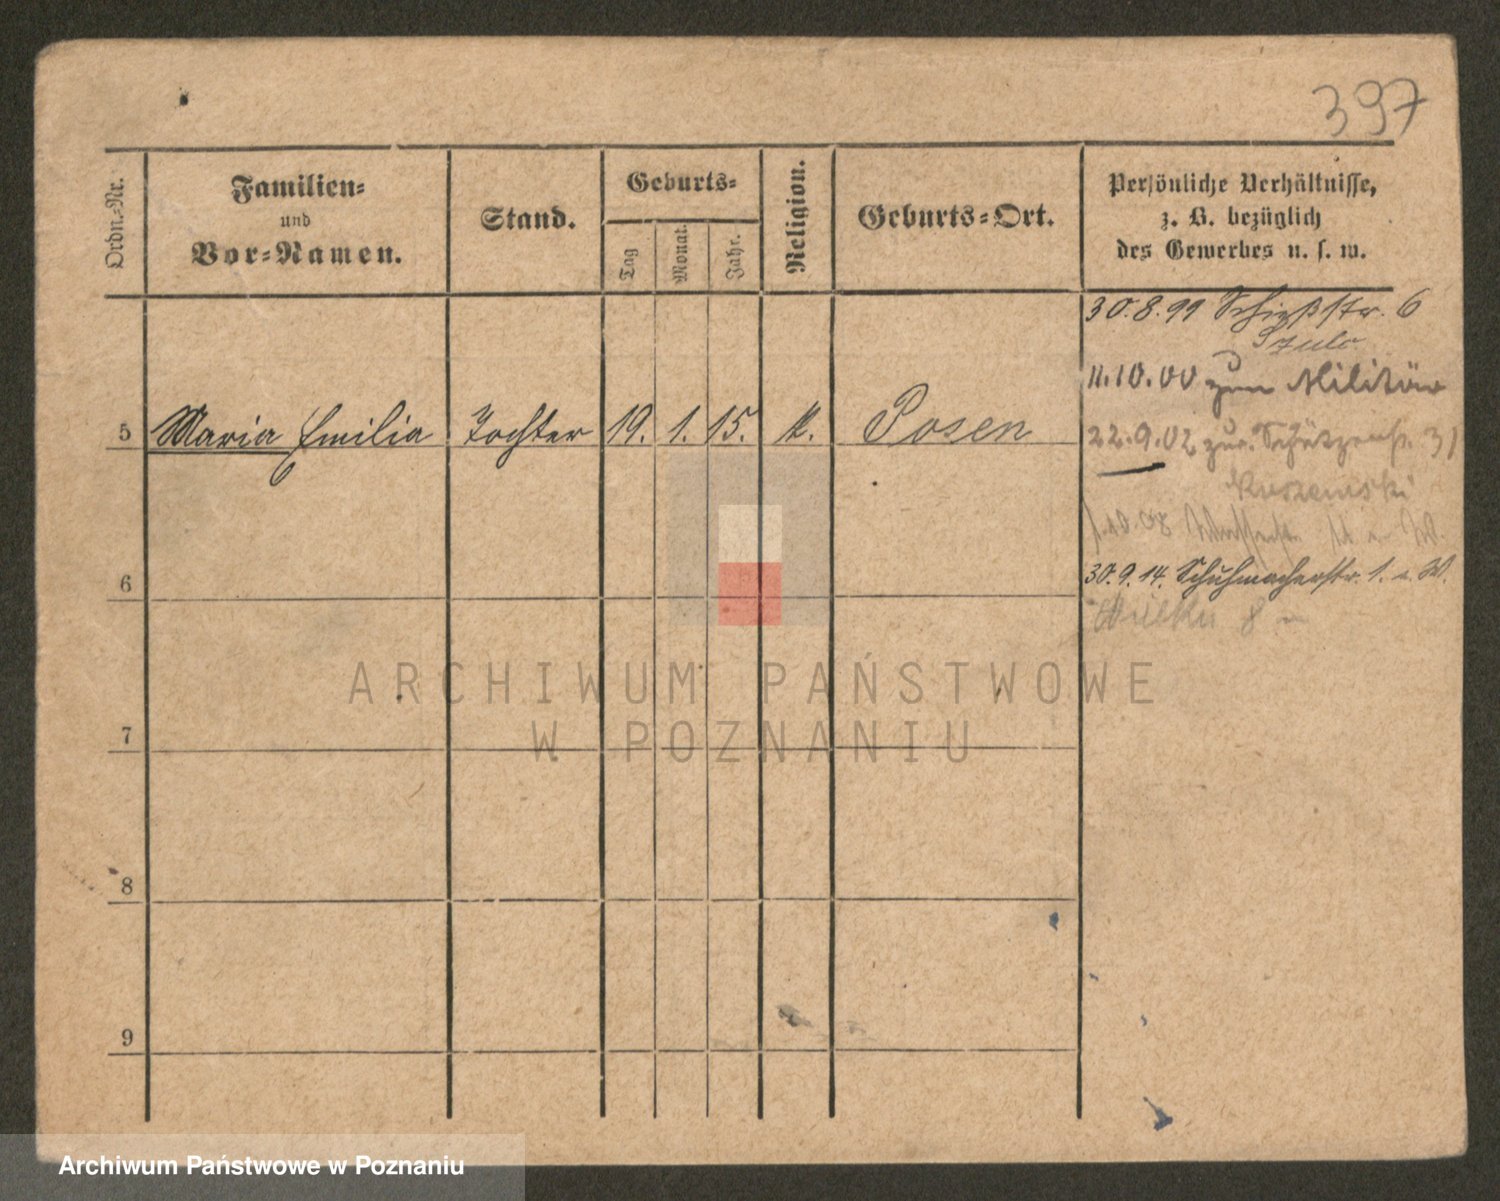 397
Ordn.-Nr.
Familien-
und
Vor-Namen.
Stand.
Geburts-
Tag
Monat.
Jahr.
Religion.
Geburts-Ort.
Persönliche Verhältnisse,
z. B. bezüglich
des Gewerbes u. s. w.
30.8.99 Schießstr. 6
Szulc
11.10.00 zum Militär
5 Maria Emilia Tochter 19. 1. 15. k. Posen
22.9.02 zur. Schützenstr. 31
1.10.08
30.9.14. Schuhmacherstr. 1. W.
6
7
8
9
ARCHIWUM PAŃSTWOWE
W POZNANIU
Archiwum Państwowe w Poznaniu